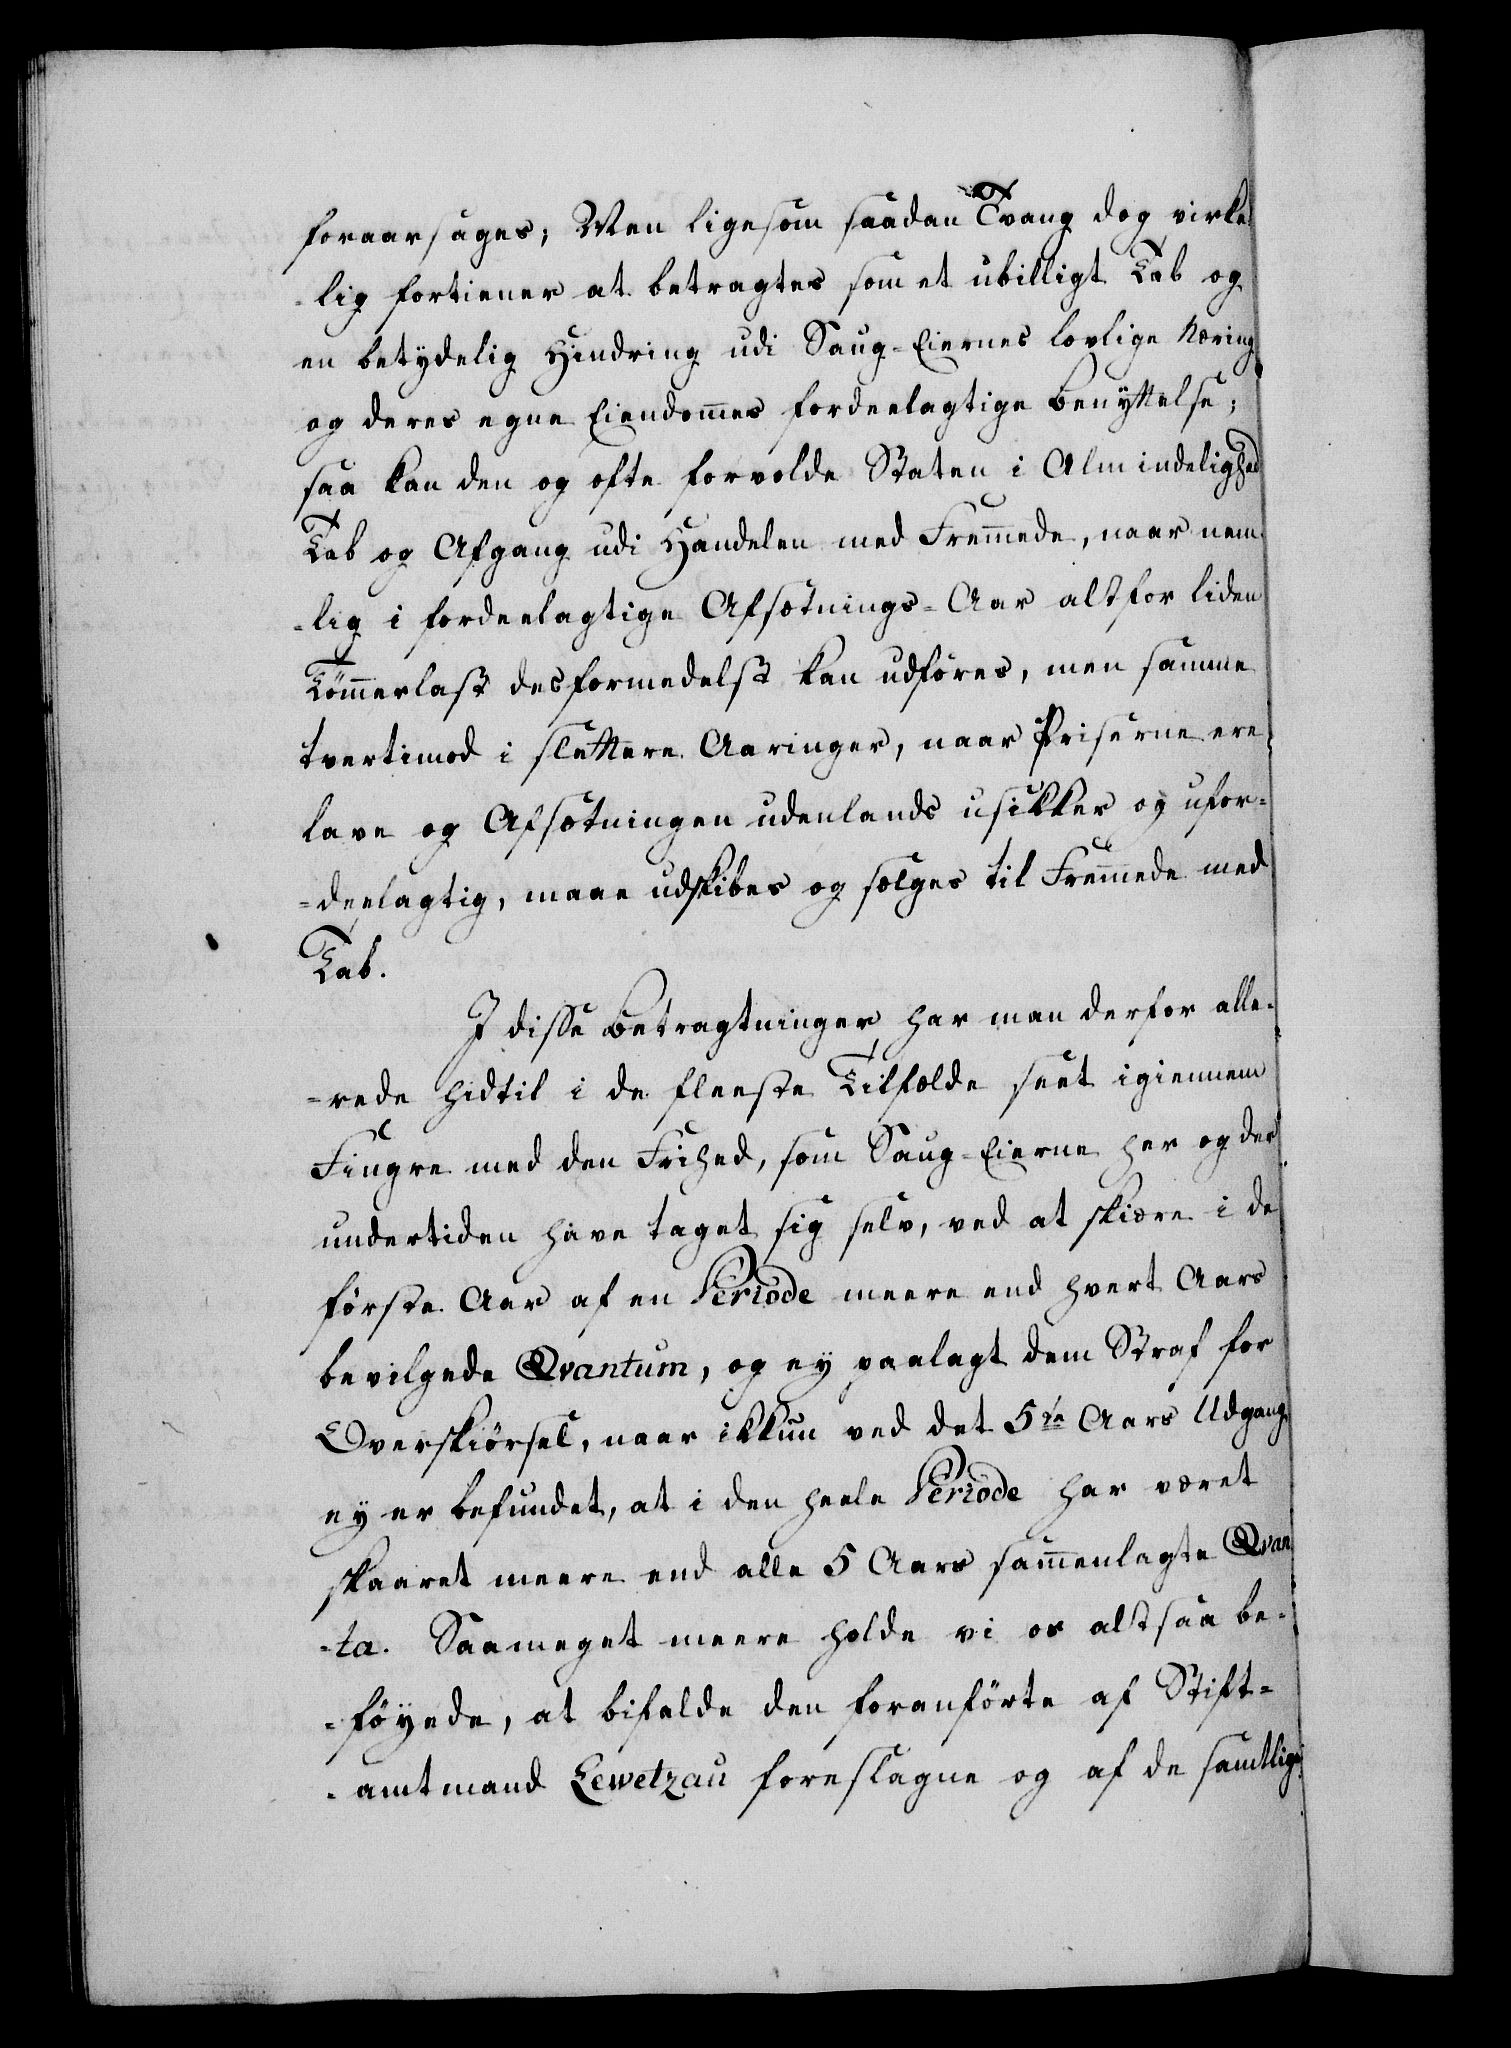 foraarsages; Men ligesom saadan Tvang dog virke-
-lig fortiener at betragtes som et ubilligt Tab og
en betydelig Hindring udi Saug-Eiernes lovlige Næring
og deres egne Eiendommes fordeelagtige Benyttelse;
saa kan den og ofte forvolde Staten i Almindelighed
Tab og Afgang udi Handelen med Fremmede, naar nem-
-lig i fordeelagtige Afsætnings-Aar altfor liden
Tømmerlast desformedelst kan udføres, men samme
tvertimod i slettere Aaringer, naar Priserne ere
lave og Afsætningen udenlands usikker og ufor-
-deelagtig, maae udskibes og sælges til Fremmede med
Tab.
I disse Betragtninger har man derfor alle-
-rede hidtil i de fleeste Tilfælde seet igiennem
Fingre med den Frihed, som Saug-Eierne her og der
undertiden have taget sig selv, ved at skiære i de
første Aar af en Periode meere end hvert Aars
bevilgede Qvantum, og ey paalagt dem Straf for
Overskiørsel, naar ikkun ved det 5te Aars Udgang
ey er befundet, at i den heele Periode har været
skaaret meere end alle 5 Aars sammenlagte Qvan-
-ta. Saameget meere holde vi os altsaa be-
-føyede, at bifalde den foranførte af Stift-
-amtmand Lewetzau foreslagne og af de samtlige